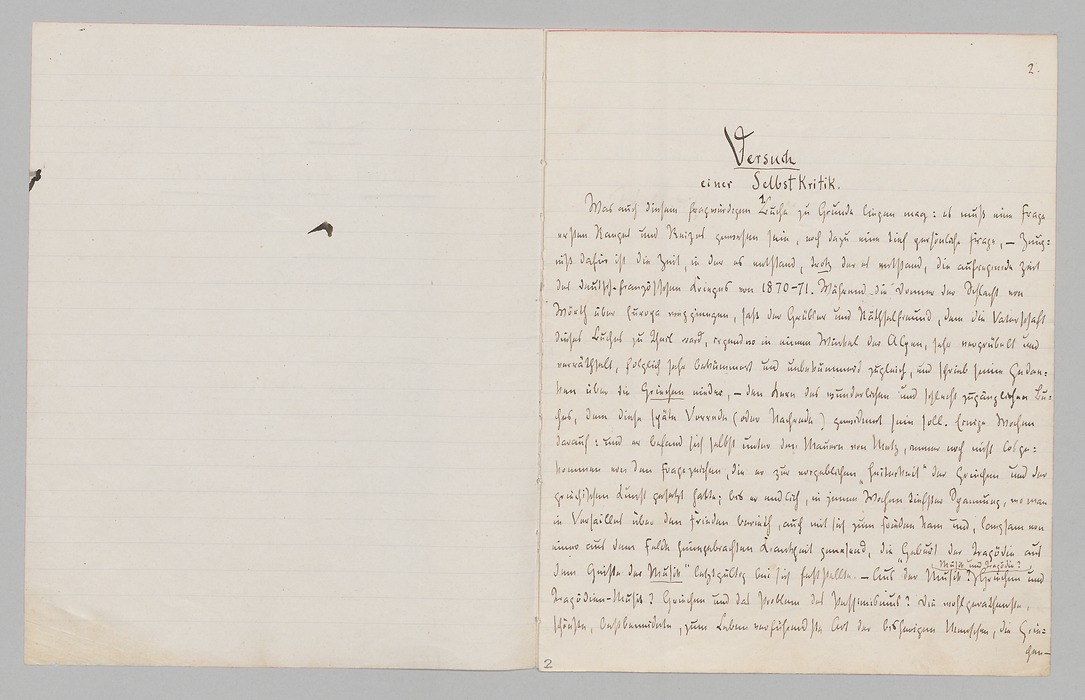 2.
Versuch
einer Selbstkritik.
1.
Was auch diesem fragwürdigen Buche zu Grunde liegen mag: es muß eine Frage
ersten Ranges und Reizes gewesen sein, noch dazu eine tief persönliche Frage, — Zeug-
niß dafür ist die Zeit, in der es entstand, trotz der es entstand, die aufregende Zeit
des deutsch-französischen Krieges von 1870-71. Während die Donner der Schlacht von
Wörth über Europa weggiengen, saß der Grübler und Räthselfreund, dem die Vaterschaft
dieses Buches zu Theil ward, irgendwo in einem Winkel der Alpen, sehr vergrübelt und
verräthselt, folglich sehr bekümmert und unbekümmert zugleich, und schrieb seine Gedan-
ken über die Griechen nieder, — den Kern des wunderlichen und schlecht zugänglichen Bu-
ches, dem diese späte Vorrede (oder Nachrede) gewidmet sein soll. Einige Wochen
darauf: und er befand sich selbst unter den Mauern von Metz, immer noch nicht losge-
kommen von den Fragezeichen, die er zur vorgeblichen „Heiterkeit" der Griechen und der
griechischen Kunst gesetzt hatte; bis er endlich, in jenem Wochen tiefster Spannung, wo man
in Versailles über den Frieden berieth, auch mit sich zum Frieden kam und, langsam von
einer aus dem Felde heimgebrachten Krankheit genesend, die „Geburt der Tragödie aus
dem Geiste der Musik" letztgültig bei sich feststellte. — Aus der Musik? Musik und Tragödie? Griechen und
Tragödien-Musik? Griechen und das Problem des Pessimismus? Die wohlgerathenste,
schönste, bestbeneidete, zum Leben verführendste Art der bisherigen Menschen, die Grie-
chen —
2